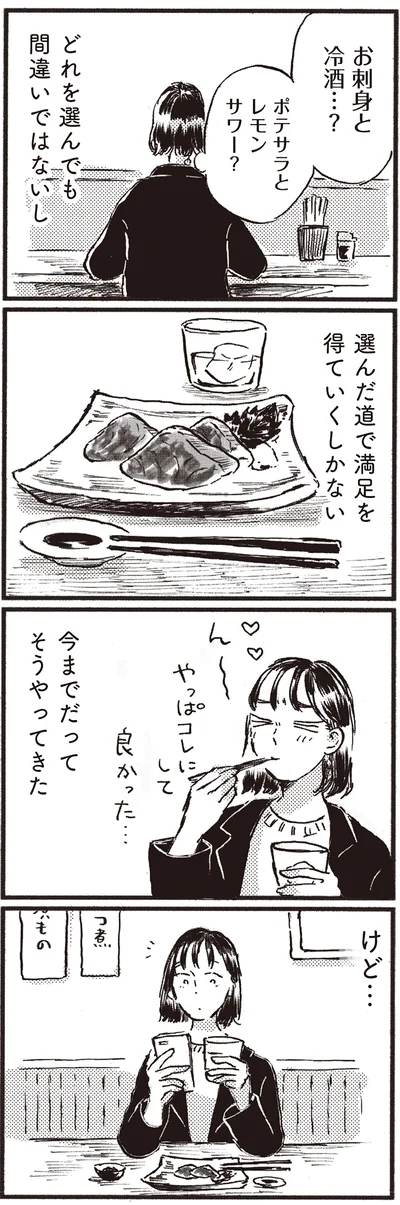 お刺身と
冷酒…?
ポテサラと
レモン
サワー?
どれを選んでも
間違いではないし
選んだ道で満足を
得ていくしかない
ん〜
やっぱコレに
して
良かった…
今までだって
そうやってきた
けど…
つ煮
もの